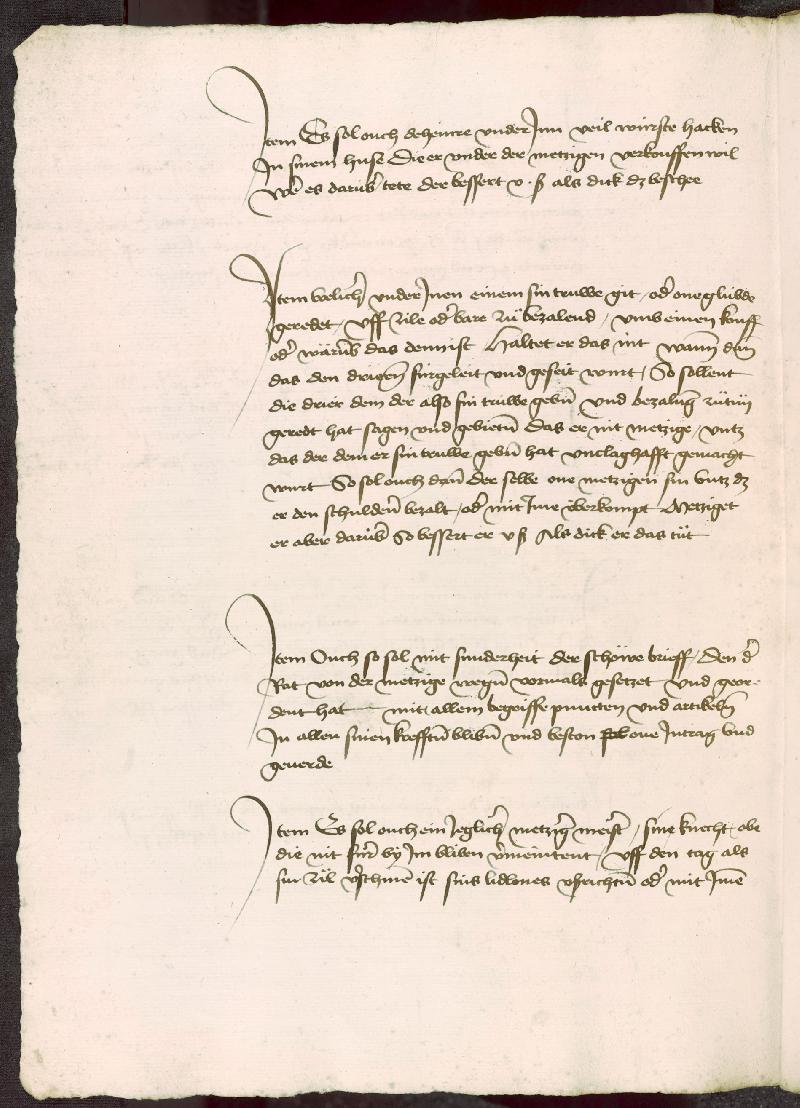 Item Es sol ouch deheinre vnder Inn veil würste hacken
In sinem huse Die er vnder der metzigen verkouffen wil
Wer es darüb tete der bessert v ß als dick dz beschee
Item welich vnder Inen einem sin truwe git / od one glübde
geredet / vff zile od bare zü bezalend / vmb einen kouff
od warüb das denn ist Haltet er das nit wann dan
das den drigen fürgeleit vnd geseit wirt / So sollent
die drier dem der also sin truwe gebn vnd bezalung zütün
geredt hat sagen vnd gebietn Das er nit metzige / vntz
das der dem er sin truwe gebn hat vnclaghafft gemacht
wirt So sol ouch dan der selbe one metzigen sin vntz dz
er den schuldern bezalt / od mit Ime überkompt Metziget
er aber darüb So bessert er v ß Als dick er das tüt
Item Ouch so sol mit sunderheit der schöwe brieff / Den d
Rat von der metzige wegn vormals gesetzet vnd geor-
dent hat mit allem begriffe puncten vnd artikeln
In allen sinen krefftn blibn vnd beston one Intrag vnd
geuerde
Item Es sol ouch ein Ieglich metzig meist / sine knecht / obe
die nit für by Im bliben vermeintent / vff den tag als
sin zil verschinen ist sins lidlones vßrichtn od mit Ime